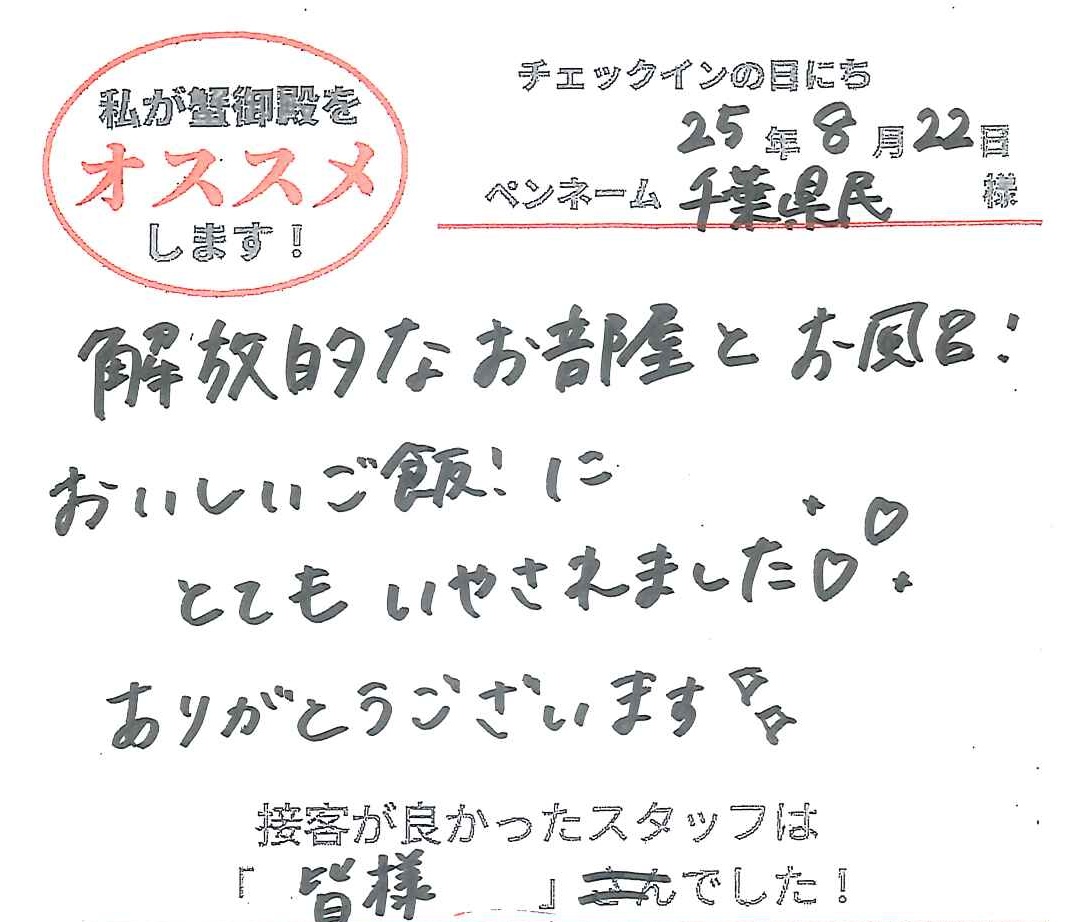 私が蟹御殿を
オススメ
します！
チェックインの日にち
25年8月22日
ペンネーム 千葉県民 様
解放的なお部屋とお風呂！
おいしいご飯！に
とてもいやされました♡♡
ありがとうございます
接客が良かったスタッフは
「 皆様 」さんでした！